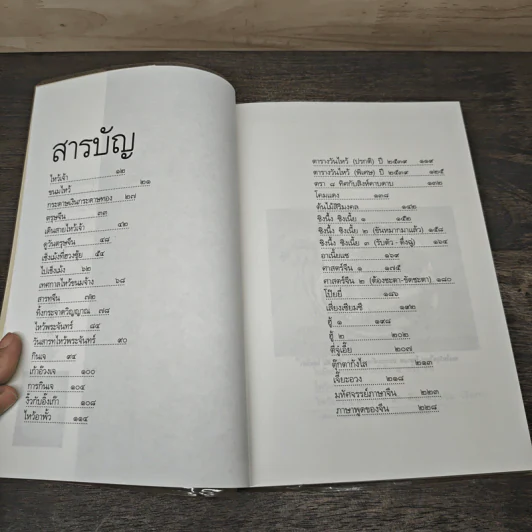 สารบัญ
ไหว้เจ้า ๑๒
ขนมไหว้ ๒๑
กระดาษเงินกระดาษทอง ๒๗
ตรุษจีน ๓๓
เดินสายไหว้เจ้า ๔๒
ดูวันตรุษจีน ๔๘
เช็งเม้งที่ฮวงซุ้ย ๕๔
ไปเช็งเม้ง ๖๒
เทศกาลไหว้ขนมจ้าง ๖๘
สารทจีน ๗๒
ทิ้งกระจาดวิญญาณ ๗๘
ไหว้พระจันทร์ ๘๔
วันสารทไหว้พระจันทร์ ๙๐
กินเจ ๙๔
เก้าอ๊วงเจ ๑๐๐
การกินเจ ๑๐๔
งิ้วกับอึ้งเก๊า ๑๐๘
ไหว้อาพั้ว ๑๑๔
ตารางวันไหว้ (ปรกติ) ปี ๒๕๓๙ ๑๑๙
ตารางวันไหว้ (พิเศษ) ปี ๒๕๓๙ ๑๒๕
ตรา ๘ ทิศกับสิงห์คาบดาบ ๑๓๒
โคมแดง ๑๓๘
ต้นไม้สิริมงคล ๑๔๒
ซิงนี้ง ซิงเนี้ย ๑ ๑๕๒
ซิงนี้ง ซิงเนี้ย ๒ (ขันหมากมาแล้ว) ๑๕๘
ซิงนี้ง ซิงเนี้ย ๓ (รับตัว-ตึ่งฉู่) ๑๖๔
อาเนี้ยแซ ๑๖๙
ศาสตร์จีน ๑ ๑๗๕
ศาสตร์จีน ๒ (ต้องชะตา-ขัดชะตา) ๑๘๐
โป๊ยยี่ ๑๘๖
เสี่ยงเซียมซี ๑๙๒
ฮู้ ๑ ๑๙๘
ฮู้ ๒ ๒๐๒
ตี่จู่เอี๊ย ๒๐๗
ตุ๊กตากังไส ๒๑๓
เจี๊ยะฮวง ๒๑๘
มหัศจรรย์ภาษาจีน ๒๒๓
ภาษาพูดของจีน ๒๒๘